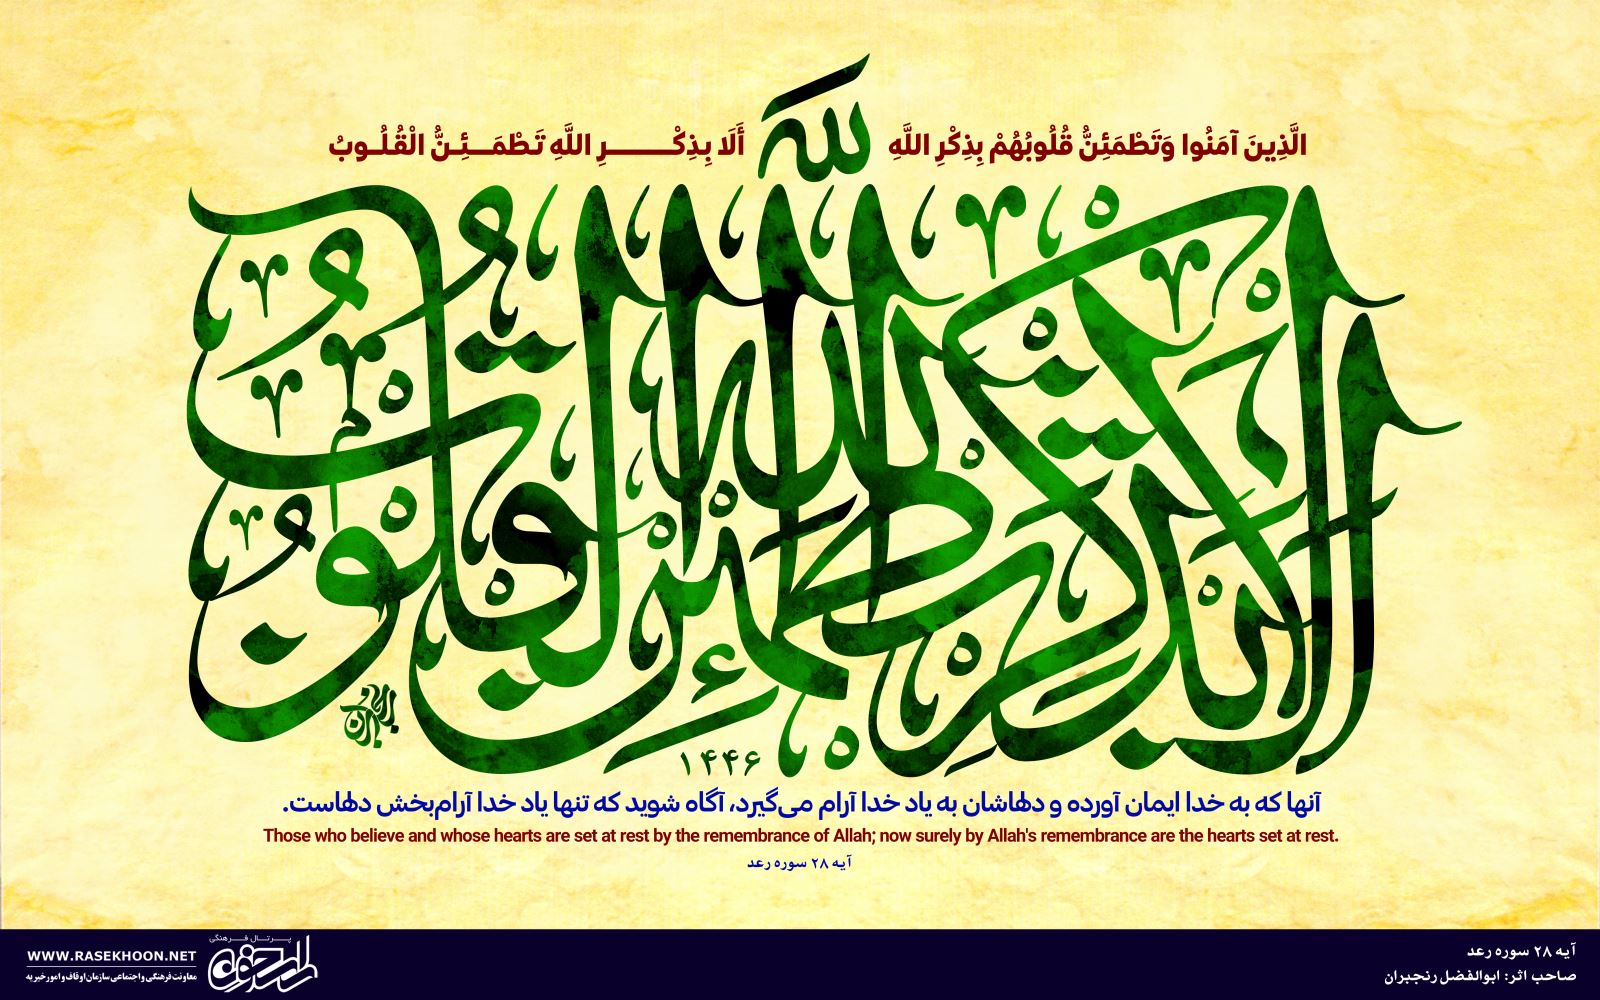 الَّذِينَ آمَنُوا وَتَطْمَئِنُّ قُلُوبُهُمْ بِذِكْرِ اللَّهِ أَلَا بِذِكْرِ اللَّهِ تَطْمَئِنُّ الْقُلُوبُ
ألا بذكر الله تطمئن القلوب
رنجبران
۱۴۴۶
آنها که به خدا ایمان آورده و دلهاشان به یاد خدا آرام می‌گیرد، آگاه شوید که تنها یاد خدا آرام‌بخش دلهاست.
Those who believe and whose hearts are set at rest by the remembrance of Allah; now surely by Allah's remembrance are the hearts set at rest.
آیه ۲۸ سوره رعد
آیه ۲۸ سوره رعد
صاحب اثر: ابوالفضل رنجبران
پرتال فرهنگی
راسخون
WWW.RASEKHOON.NET
معاونت فرهنگی و اجتماعی سازمان اوقاف و امور خیریه